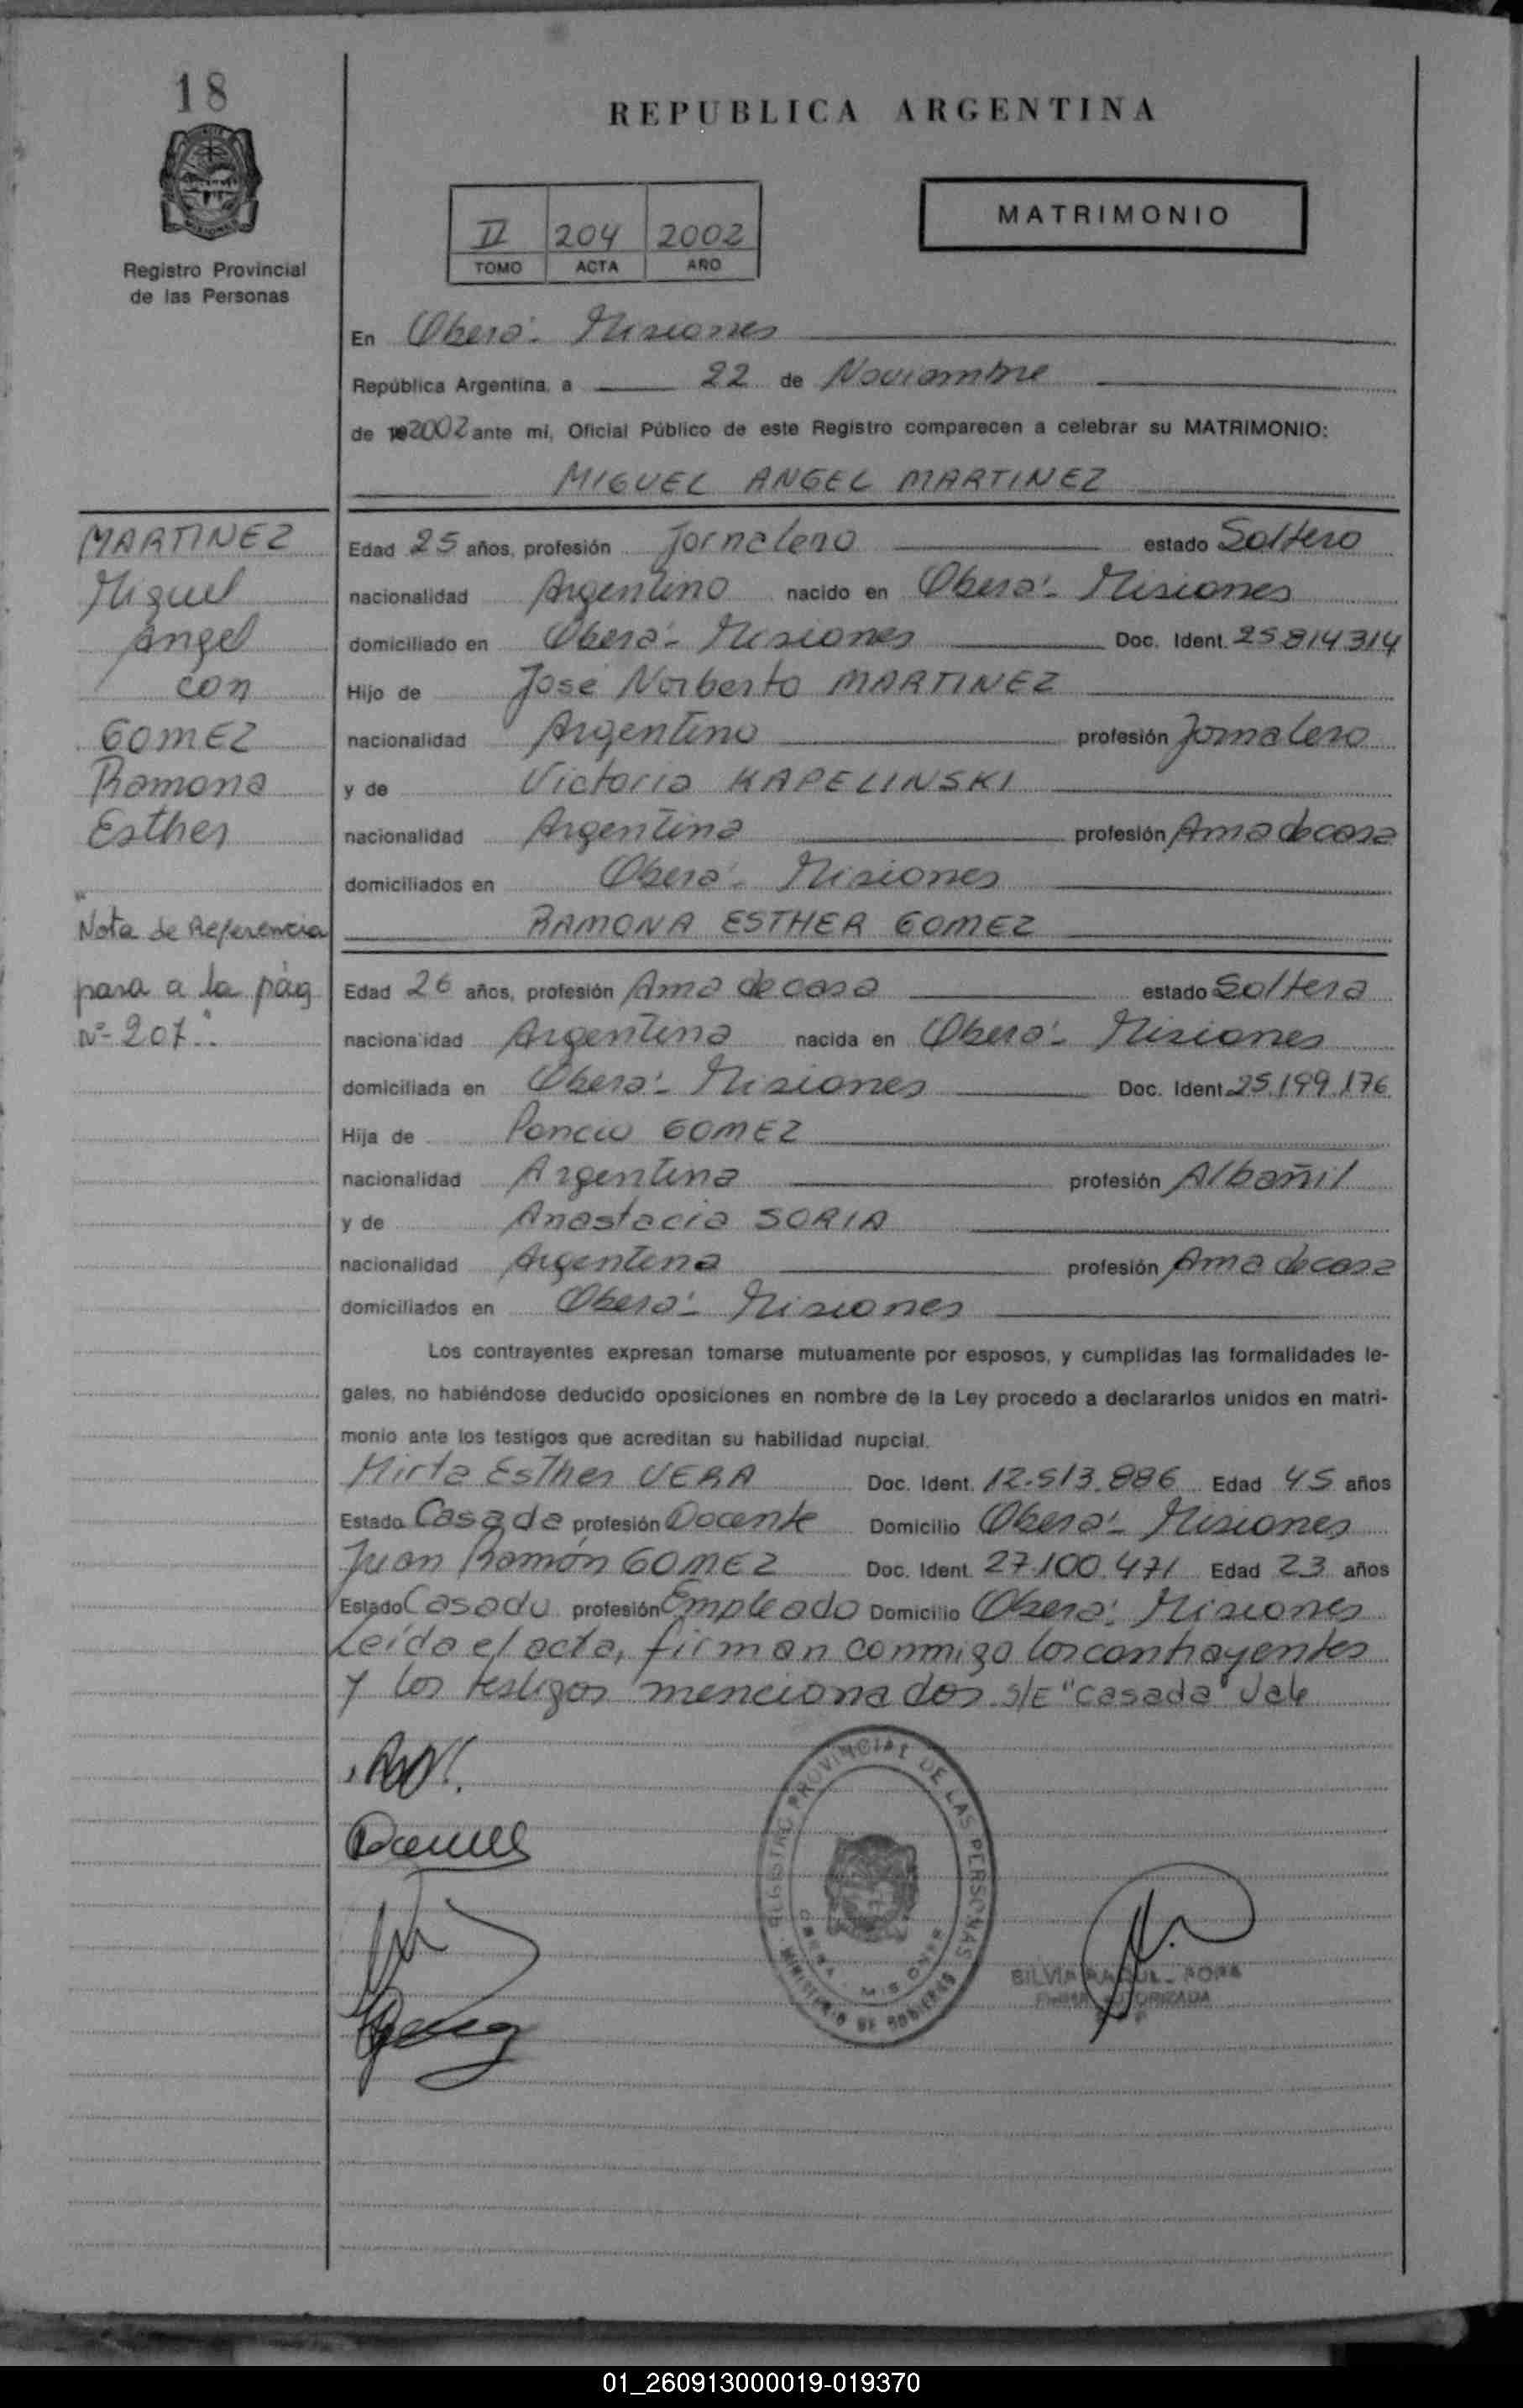 18
REPUBLICA ARGENTINA
MATRIMONIO
II 204 2002
TOMO ACTA AÑO
Registro Provincial
de las Personas
En Oberá - Misiones
República Argentina, a 22 de Noviembre
de 2002 ante mi, Oficial Público de este Registro comparecen a celebrar su MATRIMONIO:
MIGUEL ANGEL MARTINEZ
MARTINEZ
Miguel
Angel
con
GOMEZ
Ramona
Esther
"Nota de Referencia
pasa a la pág
Nº 207."
Edad 25 años, profesión Jornalero estado Soltero
nacionalidad Argentino nacido en Oberá - Misiones
domiciliado en Oberá - Misiones Doc. Ident. 25814314
Hijo de José Norberto MARTINEZ
nacionalidad Argentino profesión Jornalero
y de Victoria KAPELINSKI
nacionalidad Argentina profesión Ama de casa
domiciliados en Oberá - Misiones
RAMONA ESTHER GOMEZ
Edad 26 años, profesión Ama de casa estado Soltera
nacionalidad Argentina nacida en Oberá - Misiones
domiciliada en Oberá - Misiones Doc. Ident. 25.199.176
Hija de Poncio GOMEZ
nacionalidad Argentina profesión Albañil
y de Anastacia SORIA
nacionalidad Argentina profesión Ama de casa
domiciliados en Oberá - Misiones
Los contrayentes expresan tomarse mutuamente por esposos, y cumplidas las formalidades le-
gales, no habiéndose deducido oposiciones en nombre de la Ley procedo a declararlos unidos en matri-
monio ante los testigos que acreditan su habilidad nupcial.
Mirta Esther VERA Doc. Ident. 12.513.886 Edad 45 años
Estado Casada profesión Docente Domicilio Oberá - Misiones
Juan Ramón GOMEZ Doc. Ident. 27.100.471 Edad 23 años
Estado Casado profesión Empleado Domicilio Oberá - Misiones
Leída el acta, firman conmigo los contrayentes
y los testigos mencionados. S/E "casada" Vale
REGISTRO PROVINCIAL DE LAS PERSONAS
OBERA - MISIONES
MINISTERIO DE GOBIERNO
SILVIA RAQUEL
FIRMA AUTORIZADA
01_260913000019-019370